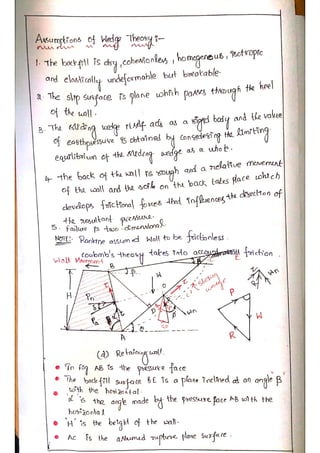 Assumptions of Wedge Theory :-
1. The backfill is dry, cohesionless, homogeneous, isotropic
and elastically undeformable but breakable.
2. The slip surface is plane which passes through the heel
of the wall.
3. The sliding wedge itself acts as a rigid body and the value
of earthpressure is obtained by considering the limiting
equilibrium of the sliding wedge as a whole.
4. The back of the wall is rough and a relative movement
of the wall and the soil on the back takes place which
develops frictional forces that influences the direction of
the resultant pressure.
5. Failure is two-dimensional.
NOTE:- Rankine assumed wall to be frictionless.
Coulomb's theory takes into account friction.
Wall Movement
B
C
H
W
Pn
A
sliding
wedge
Wn
P
W
R
(a) Retaining wall.
In fig AB is the pressure face
The backfill surface BE is a plane inclined at an angle β
with the horizontal.
α is the angle made by the pressure face AB with the
horizontal
'H' is the height of the wall.
AC is the assumed rupture plane surface.